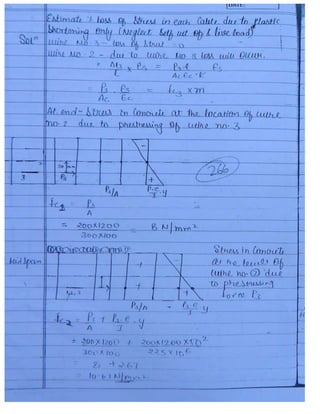 Estimate % loss of stress in each cable due to plastic
shortening only (neglect self wt of & live load)
Sol"
wire No. 3 - loss of stress = 0
wire No. 2 - due to wire No 3 loss will occur.
= Ps Es
L Ac Ec
= Ps . Es = fc3 x m
Ac Ec
At end - Stress in Concrete at the location of wire
no. 2 due to prestressing of wire no. 3
3 Ps
Ps/A P.e.y
I
266
fc2 = Ps
A
= 200x1200 = 8 N/mm²
300x100
Mid Span
Stress in Concrete
at the level of
wire no. ② due
to prestressing
force Ps
Ps/A Ps.e y
I
fc2 = Ps + Ps.e . y
A I
= 200x1200 + 200x1200x50²
300x100 225x10⁶
= 8 + 2.67
= 10.67 N/mm²